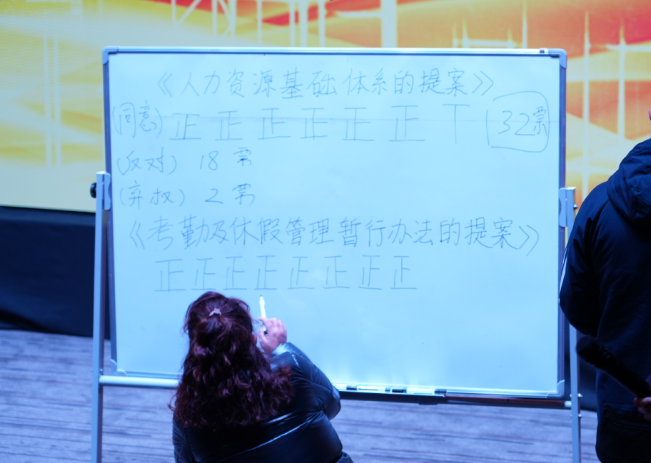 《人力资源基础体系的提案》
(同意) 正 正 正 正 正 正 丅 32票
(反对) 18 票
(弃权) 2 票
《考勤及休假管理暂行办法的提案》
正 正 正 正 正 正 正 正